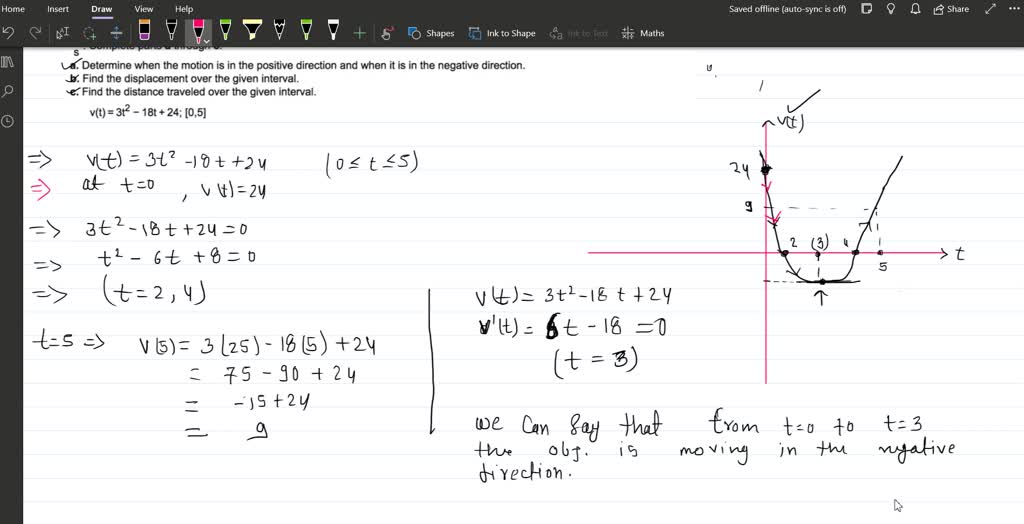 Home Insert Draw View Help Saved offline (auto-sync is off) Share
Shapes Ink to Shape Ink to Text Maths
a. Determine when the motion is in the positive direction and when it is in the negative direction.
b. Find the displacement over the given interval.
c. Find the distance traveled over the given interval.
v(t) = 3t² − 18t + 24; [0,5]
=> v(t) = 3t² - 18t + 24 (0 ≤ t ≤ 5)
=> at t=0 , v(t) = 24
=> 3t² - 18t + 24 = 0
=> t² - 6t + 8 = 0
=> (t = 2, 4)
t=5 => v(5) = 3(25) - 18(5) + 24
= 75 - 90 + 24
= -15 + 24
= 9
v(t)
24
9
2 (3) 4
5
t
v(t) = 3t² - 18t + 24
v'(t) = 6t - 18 = 0
(t = 3)
we can say that from t=0 to t=3
the obj. is moving in the negative
direction.